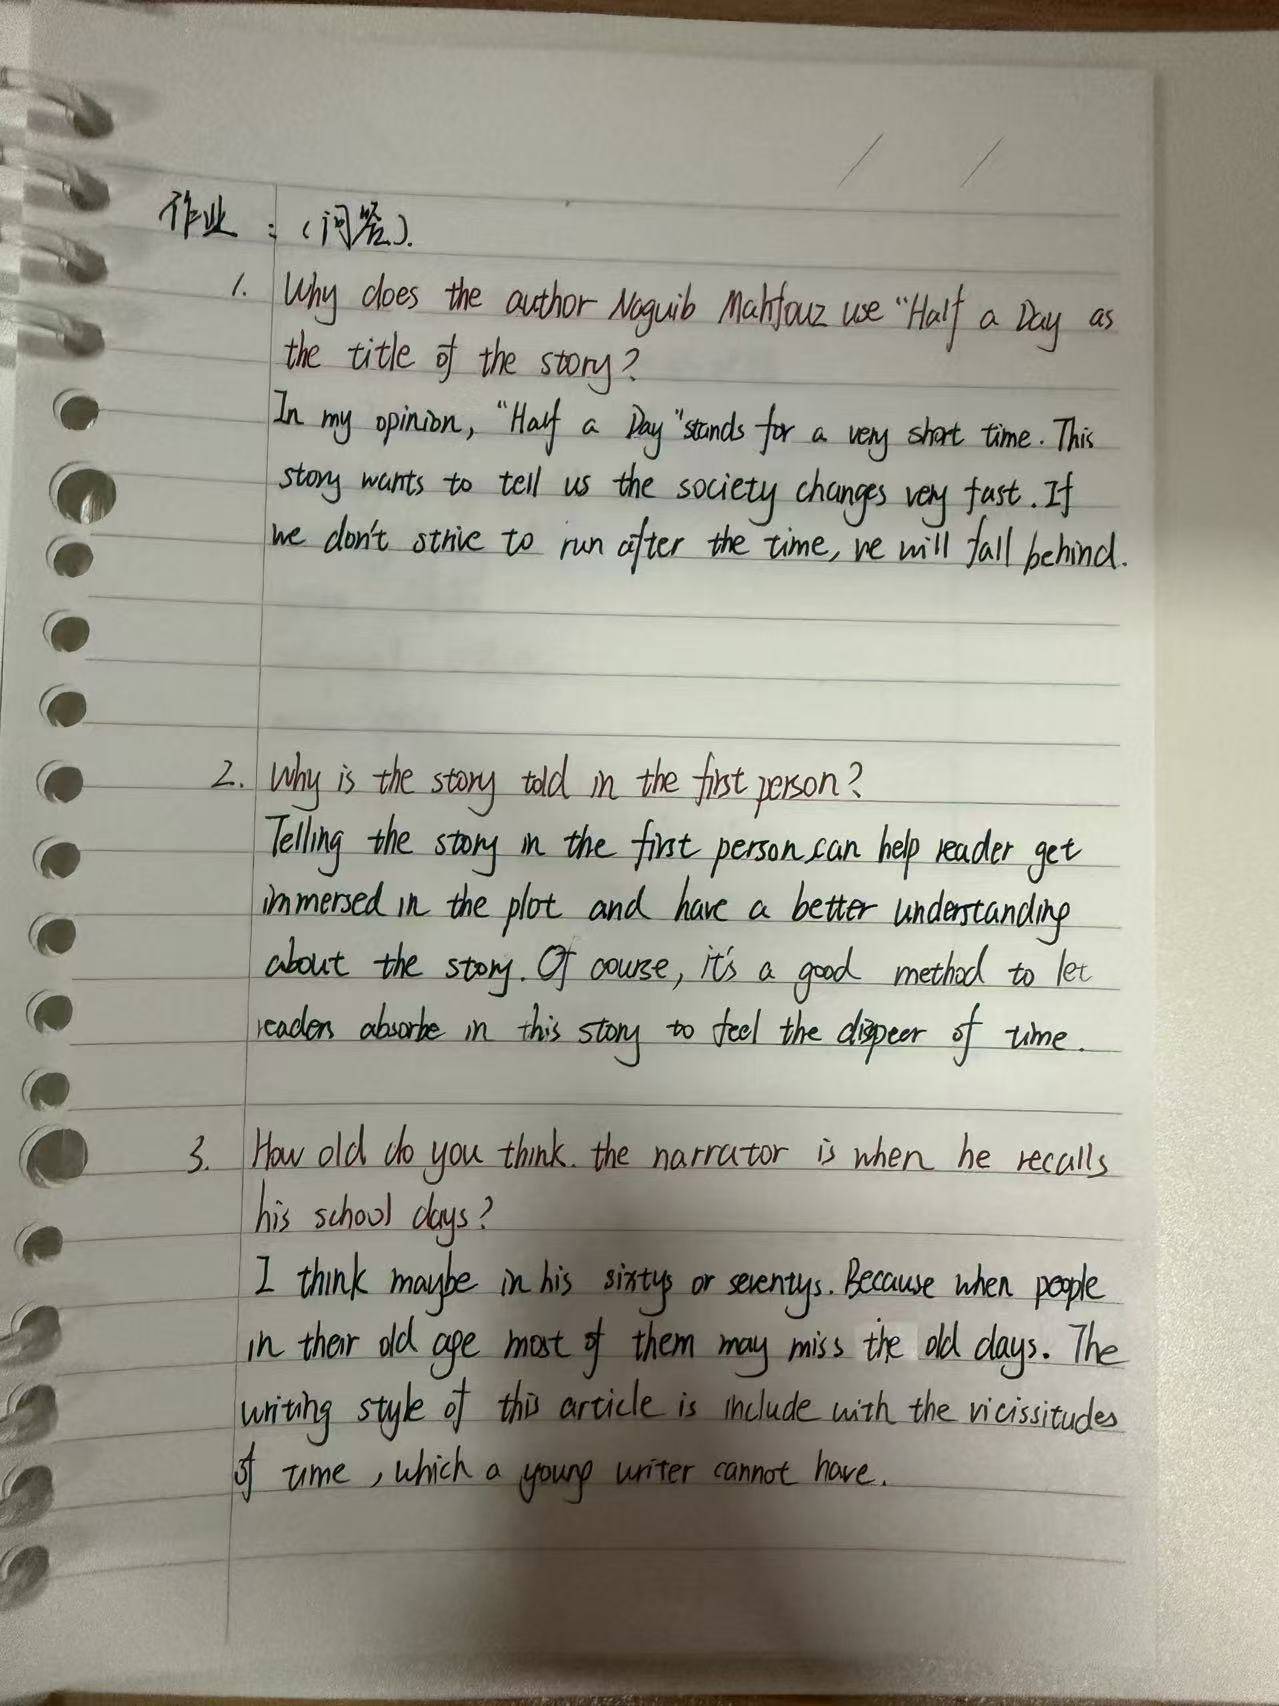 作业：（问答）.
1. Why does the author Naguib Mahfouz use "Half a Day as
the title of the story?
In my opinion, "Half a Day" stands for a very short time. This
story wants to tell us the society changes very fast. If
we don't strive to run after the time, we will fall behind.
2. Why is the story told in the first person?
Telling the story in the first person can help reader get
immersed in the plot and have a better understanding
about the story. Of course, it's a good method to let
readers absorbe in this story to feel the dispeer of time.
3. How old do you think. the narrator is when he recalls
his school days?
I think maybe in his sixtys or seventys. Because when people
in their old age most of them may miss the old days. The
writing style of this article is include with the vicissitudes
of time, which a young writer cannot have.